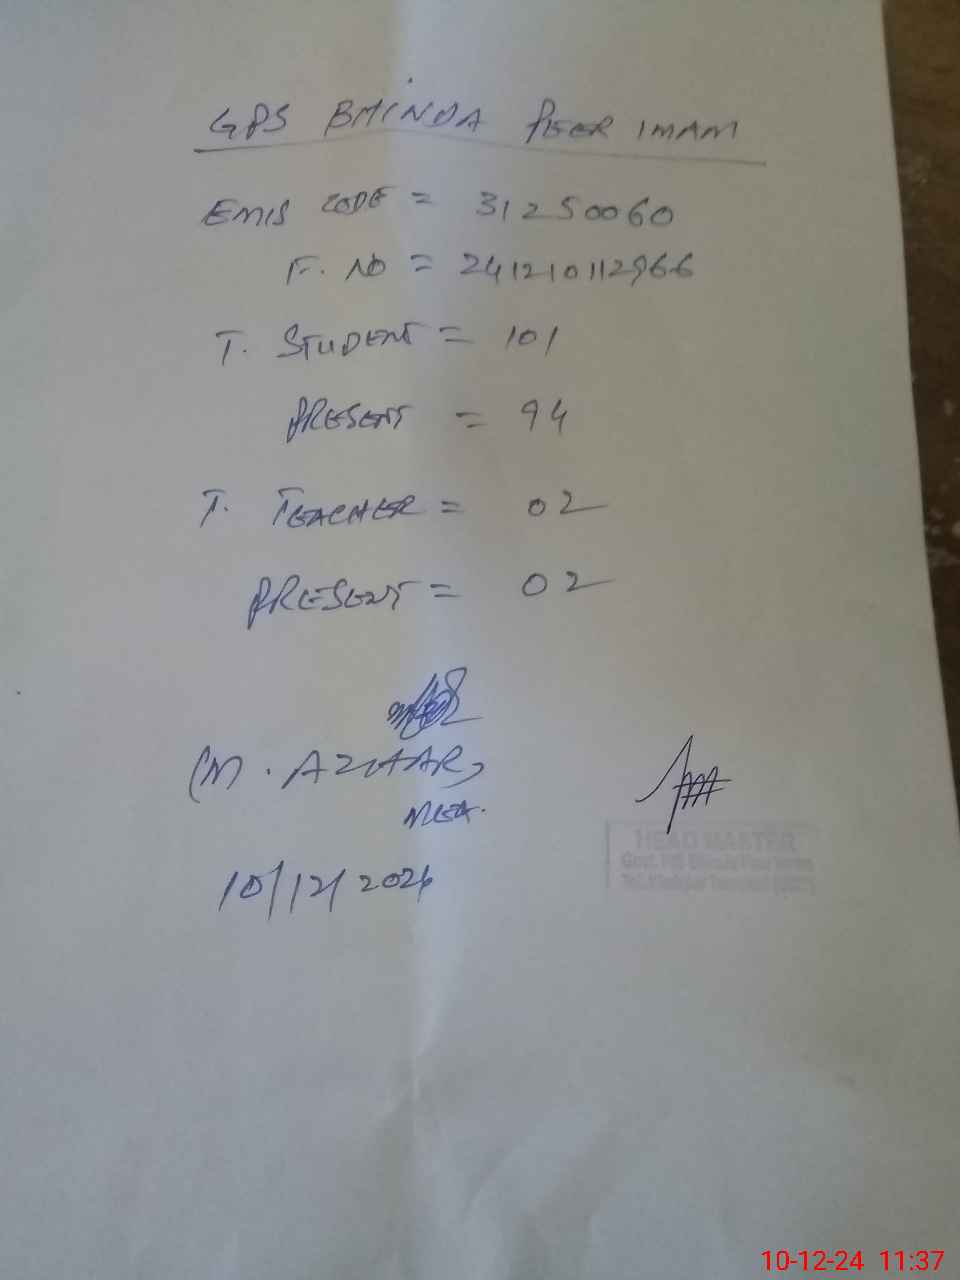 GPS BHINDA PEER IMAM
EMIS CODE = 31250060
F. NO = 241210112966
T. STUDENT = 101
PRESENT = 94
T. TEACHER = 02
PRESENT = 02
(M. AZHAR)
MEA.
10/12/2024
HEAD MASTER
Govt. P/S Bhinda Peer Imam
10-12-24 11:37